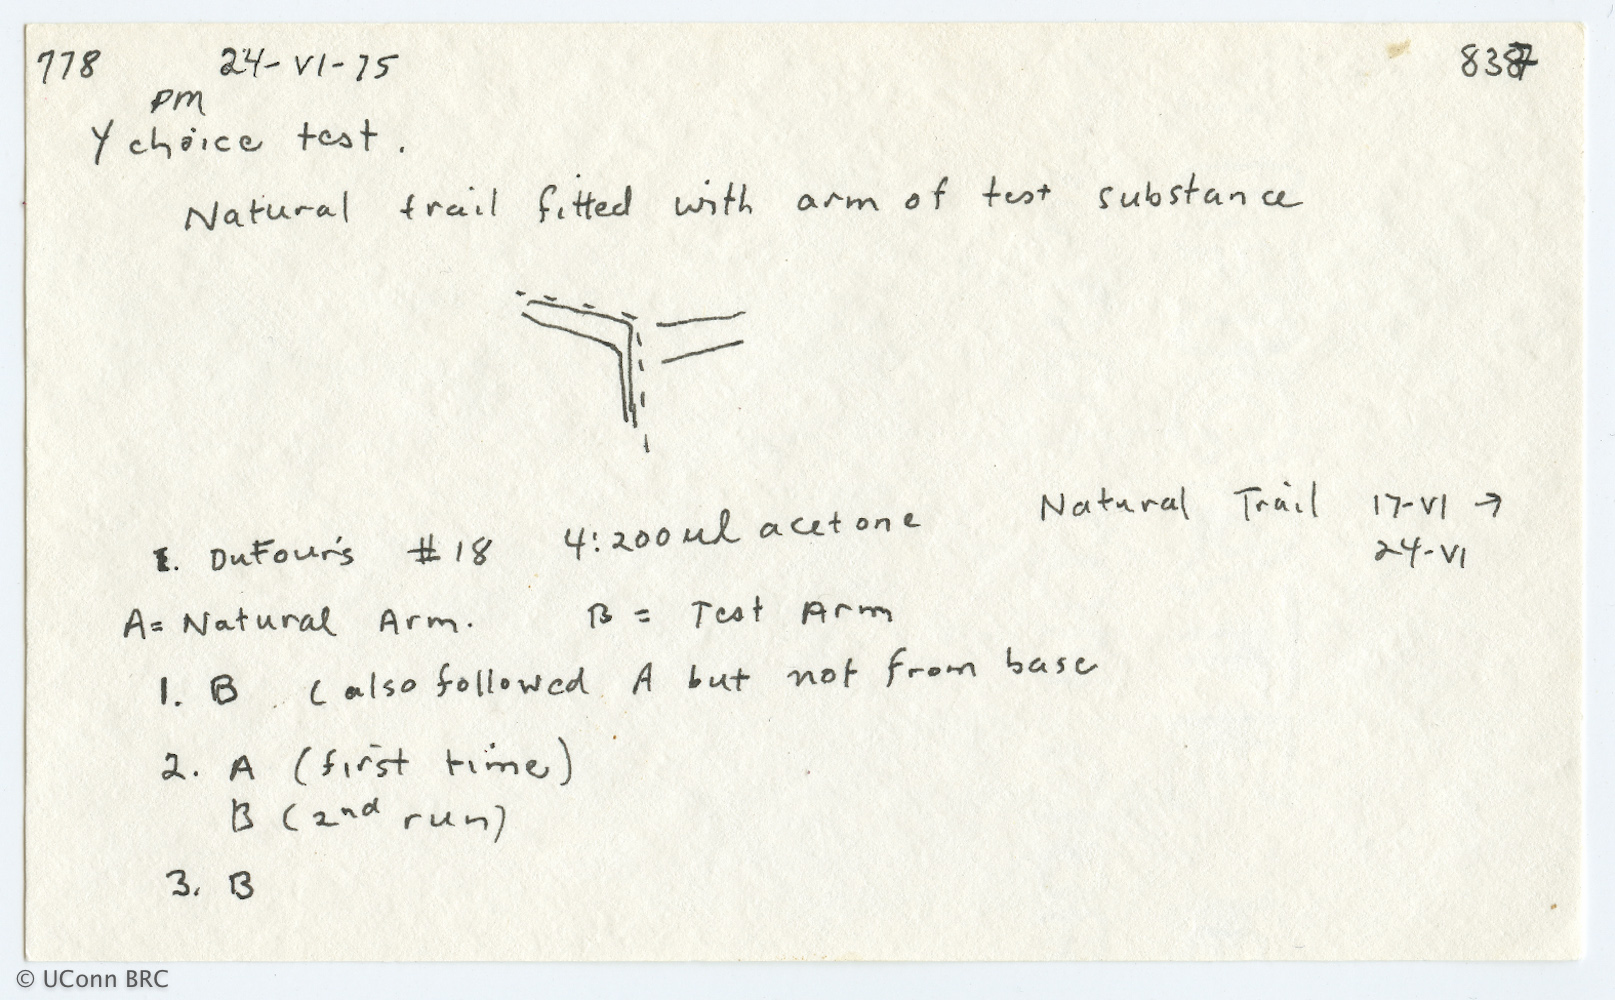 778 24-VI-75 837
PM
Y choice test.
Natural trail fitted with arm of test substance
Natural Trail 17-VI →
24-VI
I. DuFour's #18 4:200ul acetone
A= Natural Arm. B = Test Arm
1. B (also followed A but not from base
2. A (first time)
B (2nd run)
3. B
© UConn BRC